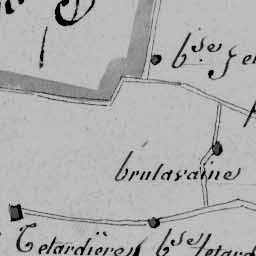 bse
brulavaine
Tetardière bse tetard